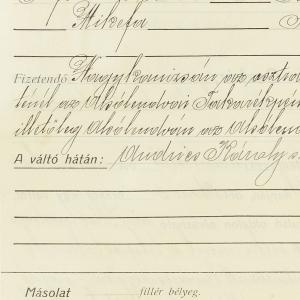 Mikefa
Fizetendő Nagykanizsán az osztrá
ténél az Alsólendvai Takarékpén
illetőleg Alsólendván az Alsólend
A váltó hátán: Andrics Károly s.
Másolat fillér bélyeg.